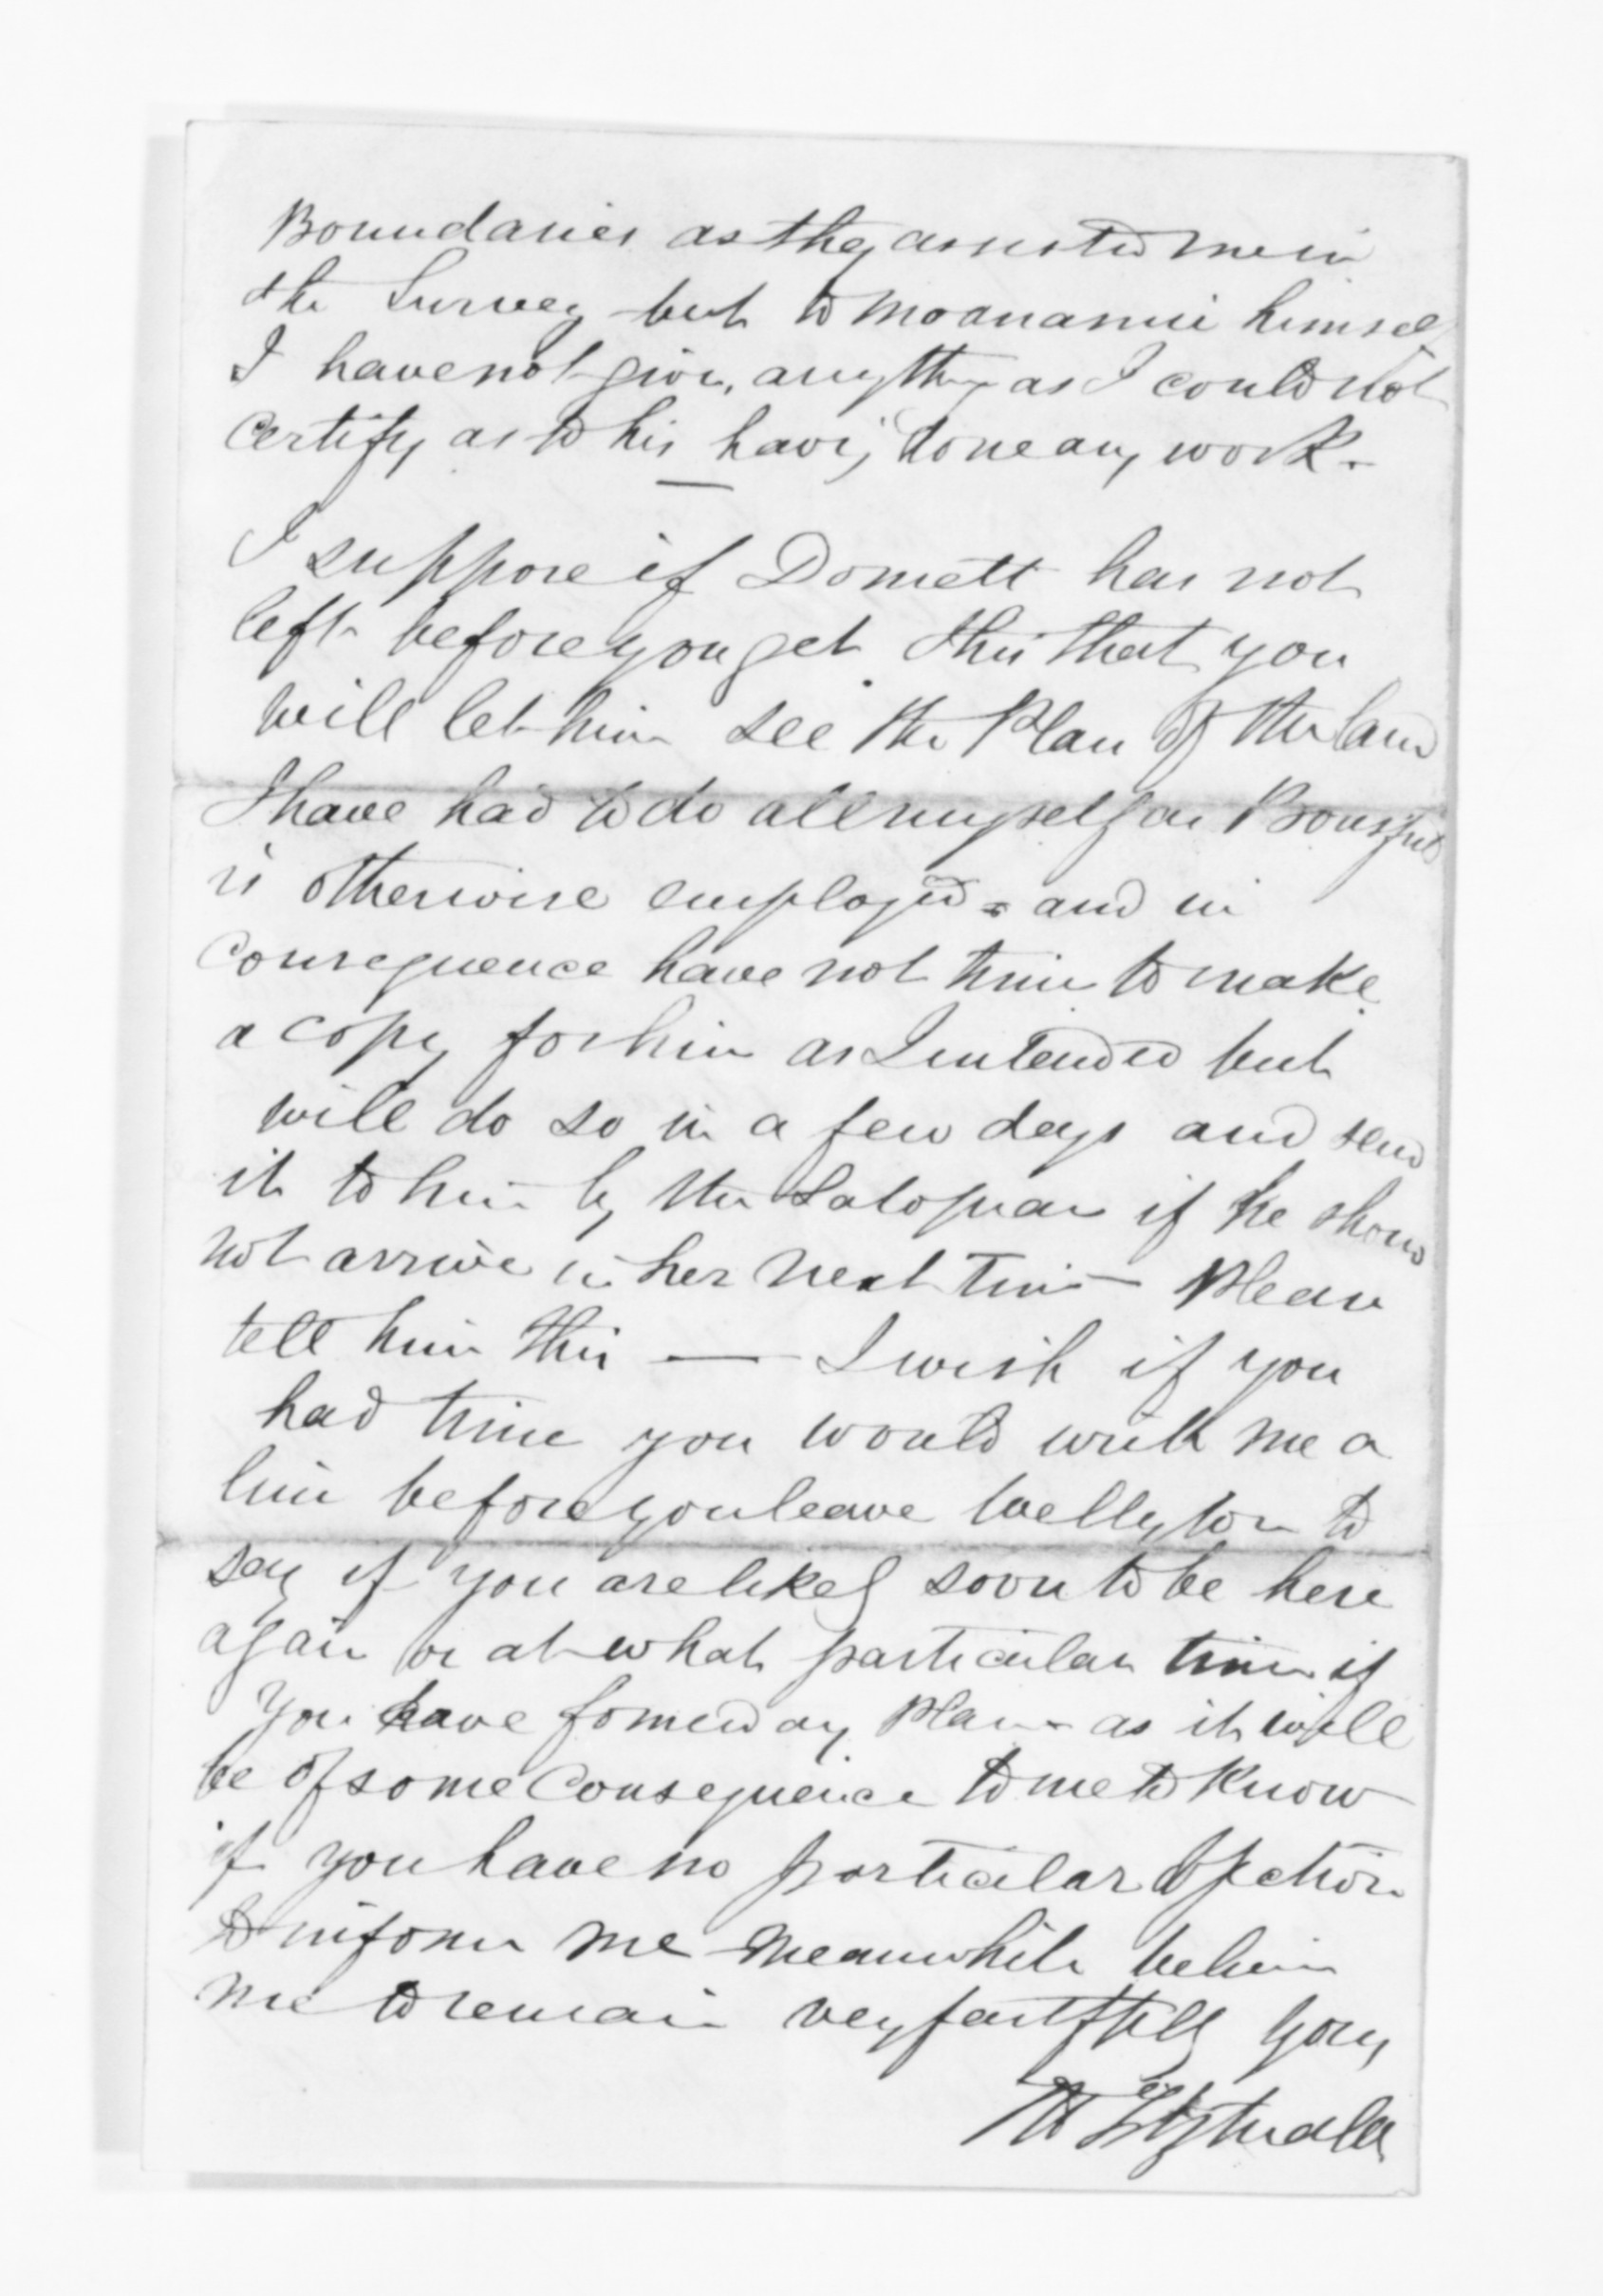 Boundaries as they assisted me in
the Survey but to Moananui himself
I have not given anything as I could not
certify as to his having done any work.
I suppose if Domett has not
left before you get this that you
will let him see the Plan of the land
I have had to do all myself as Bousfield
is otherwise employed - and in
consequence have not time to make
a copy for him as I intended but
will do so in a few days and send
it to him by the Salopian if he should
not arrive in her next time - Please
tell him this — I wish if you
had time you would write me a
line before you leave Wellington to
say if you are likely soon to be here
again or at what particular time if
you have formed any Plan - as it will
be of some consequence to me to know
if you have no particular objection
to inform me meanwhile believe
me to remain very faithfully yours
Fitzgerald